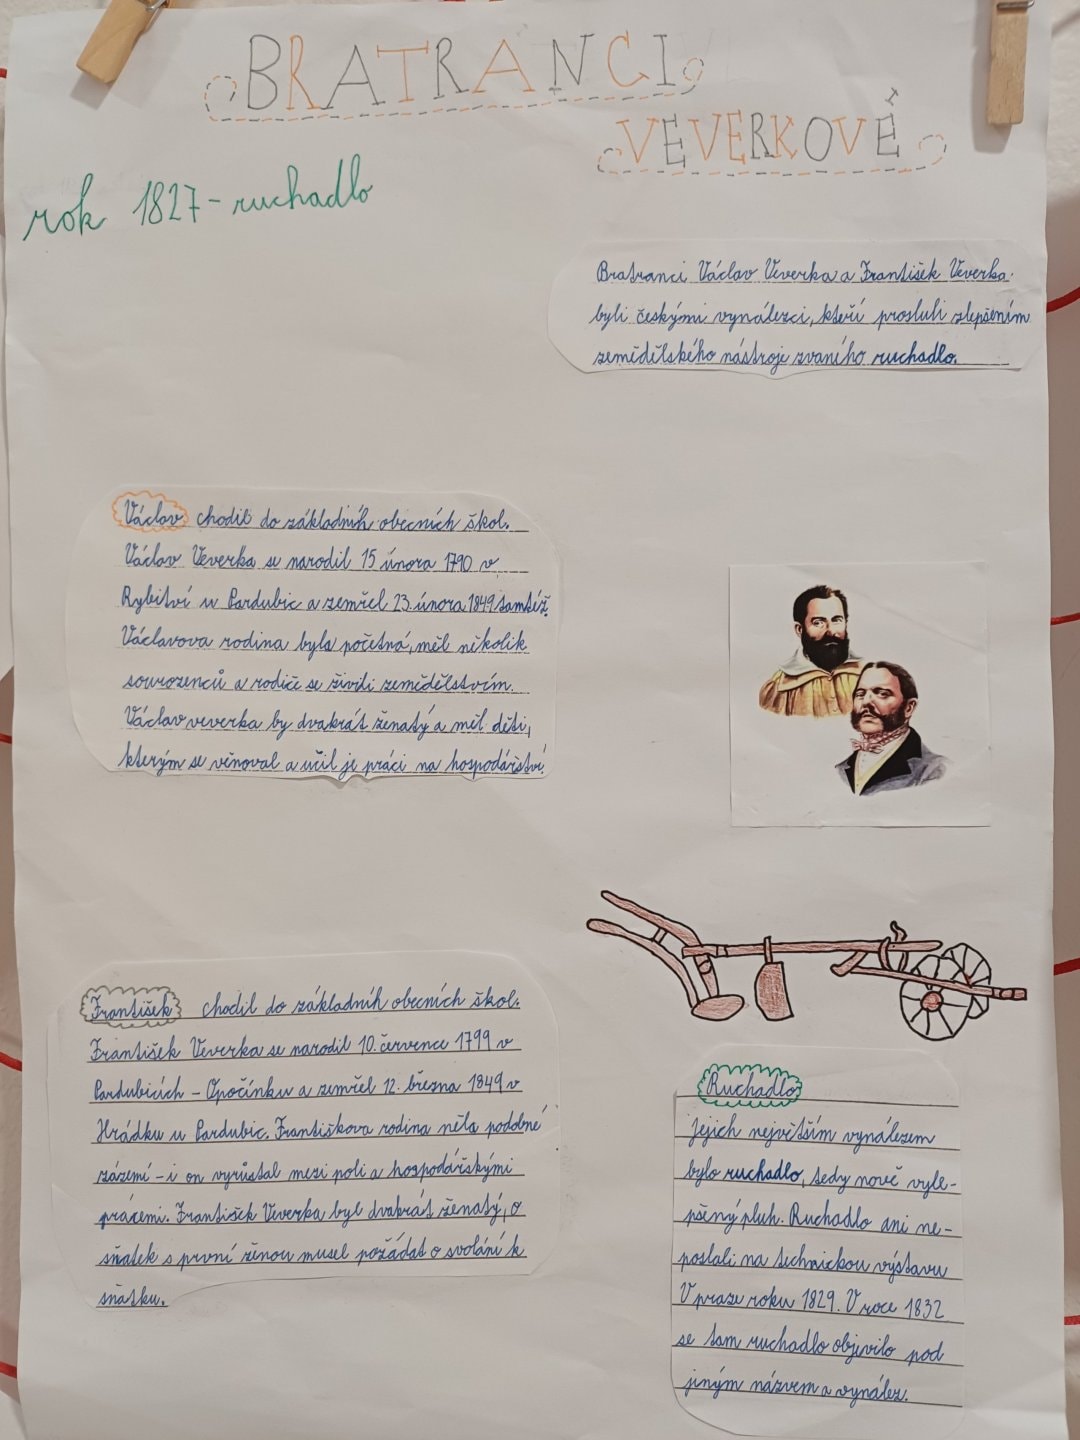 BRATRANCI
VEVERKOVÉ
rok 1827-ruchadlo
Bratranci Václav Veverka a František Veverka
byli českými vynálezci, kteří prosluli zlepšením
zemědělského nástroje zvaného ruchadlo.
Václav chodil do základních obecních škol.
Václav Veverka se narodil 15 února 1790 v
Rybitví u Pardubic a zemřel 23 února 1849 tamtéž.
Václavova rodina byla početná, měl několik
sourozenců a rodiče se živili zemědělstvím.
Václav veverka by dvakrát ženatý a měl děti,
kterým se věnoval a učil je práci na hospodářství.
František chodil do základníh obecních škol.
František Veverka se narodil 10. července 1799 v
Pardubicích - Opočínku a zemřel 12. března 1849 v
Hrádku u Pardubic. Františkova rodina něla podobné
zázemí - i on vyrůstal mezi poli a hospodářskými
prácemi. František Veverka byl dvakrát ženatý, o
sňatek s první ženou musel požádat o svolání k
sňatku.
Ruchadlo
Jejich největším vynálezem
bylo ruchadlo, tedy nově vyle-
pšený pluh. Ruchadlo ani ne-
poslali na technickou výstavu
V praze roku 1829. V roce 1832
se tam ruchadlo objevilo pod
jiným názvem a vynález.